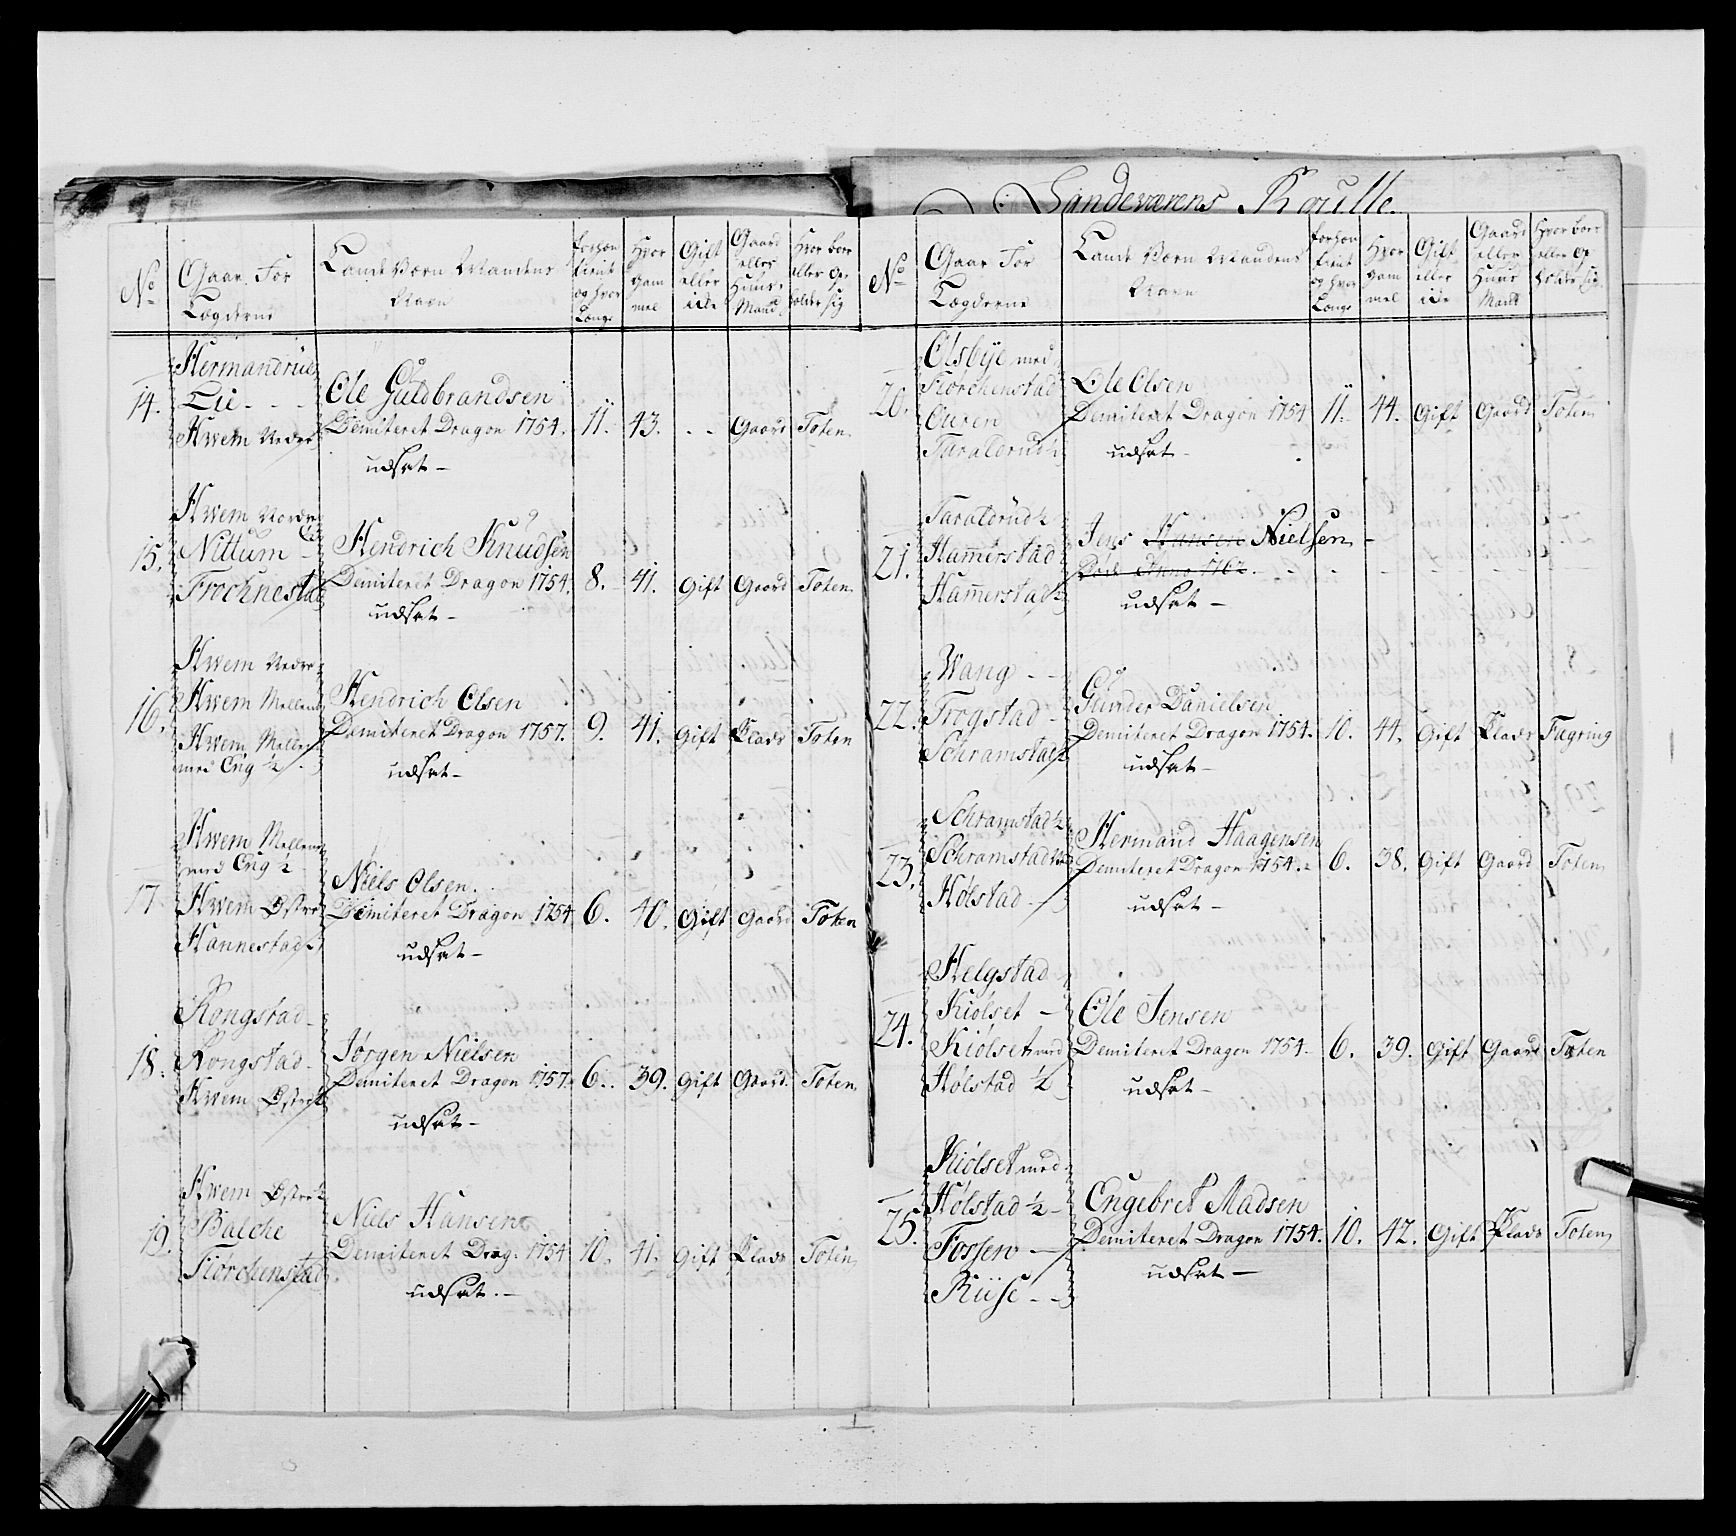 Landeværens Roulle.
No
Gaar For
Lægderne
Lande Værn Mandens
Navn
forhen
tient
og hvor
Længe
Hvor
gam
mel
Gift
eller
icke
Gaard
eller
Huus-
Mand.
Hvor boer
eller op-
holder sig
14.
Hermandrüe
Lie - -
Hwem Nedre
Ole Guldbrandsen
Demiteret Dragon 1754.
11. 43. - - Gaard Toten
udsat -
15.
Hwem Nordre
Nittum
Frochnestad
Hendrich Knudsen
Demiteret Dragon 1754.
8. 41. Gift Gaard Toten
udsat -
16.
Hwem Nedre
Hwem Mellem
Hwem Mellem
med Eng ½
Hendrich Olsen
Demiteret Dragon 1757.
9. 41. Gift Plads Toten
udsat -
17
Hwem Mellem
med Eng ½
Hwem Østre
Hannestad
Niels Olsen.
Demiteret Dragon 1754
6. 40. Gift Gaard Toten
udsat -
18.
Rongstad
Rongstad
Hwem Østre
Jørgen Nielsen
Demiteret Dragon 1757.
6. 39. Gift Gaard. Toten
udsat -
19.
Hwem Østre ½
Balche
Storchenstad
Niels Hansen
Demiteret Drag. 1754
10. 41. Gift Plads Toten
udsat. -
No
Gaar For
Lægderne
Lande Værn Mandens
Navn
forhen
tient
og hvor
Længe
Hvor
gam
mel
Gift
eller
icke
Gaard
eller
Huus
Mand
Hvor boer
eller op-
holder sig
20.
Olsbÿe med
Storchenstad
Ouren
Taraldrud ½
Ole Olsen
Demiteret Dragon 1754
11. 44. Gift Gaard Toten
udsat -
21.
Taraldrud ½
Hammerstad
Hammerstad ½
Jens Hansen Nielsen
Født Anno 1762.
udsat -
22.
Wang - -
Frogstad -
Schramstad ½
Gunder Danielsen
Demiteret Dragon 1754.
10. 44. Gift Plads Fagring
udsat -
23.
Schramstad ½
Schramstad
Hølstad -
Hermand Haagensen
Demiteret Dragon 1754.
6. 38. Gift Gaard Toten
udsat -
24.
Helgstad
Kiølset -
Kiølset med
Hølstad ½
Ole Jensen
Demiteret Dragon 1754.
6. 39. Gift Gaard Toten
udsat -
25.
Kiølset med
Hølstad ½
Fossen -
Rüse - -
Engebret Madsen
Demiteret Dragon 1754.
10. 42. Gift Plads Toten
udsat -